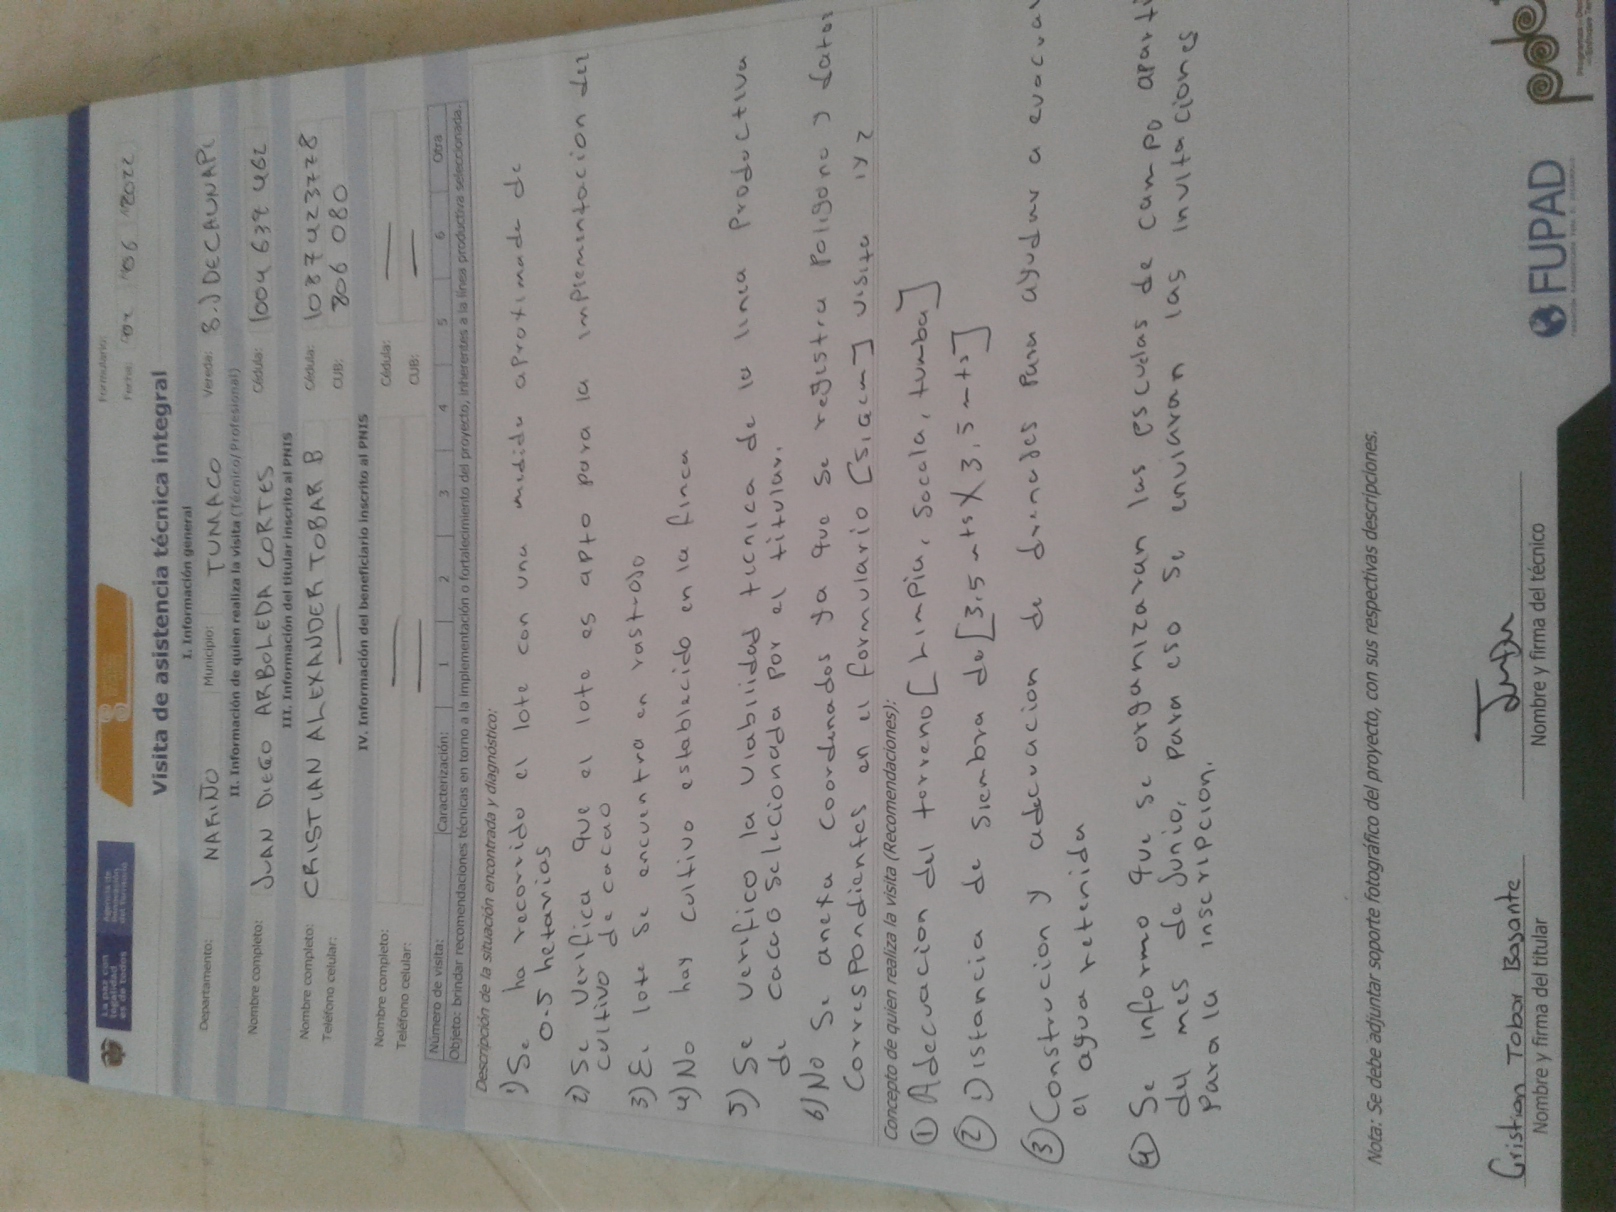 La paz con
legalidad
es de todos
Agencia de
Renovación
del Territorio
Formulario:
Fecha: 02 06 2022
Visita de asistencia técnica integral
I. Información general
Departamento: NARIÑO Municipio: TUMACO Vereda: B.J DECAUNAPI
II. Información de quien realiza la visita (Técnico/Profesional)
Nombre completo: JUAN DIEGO ARBOLEDA CORTES Cédula: 1004639462
III. Información del titular inscrito al PNIS
Nombre completo: CRISTIAN ALEXANDER TOBAR B Cédula: 1087423778
Teléfono celular: — CUB: 306080
IV. Información del beneficiario inscrito al PNIS
Nombre completo: — Cédula: —
Teléfono celular: — CUB: —
Número de visita: Caracterización: 1 2 3 4 5 6 Otra
Objeto: brindar recomendaciones técnicas en torno a la implementación o fortalecimiento del proyecto, inherentes a la línea productiva seleccionada.
Descripción de la situación encontrada y diagnóstico:
1) Se ha recorrido el lote con una medida aproximada de
0.5 hetarias
2) Se verifica que el lote es apto para la implementacion del
cultivo de cacao
3) El lote se encuentra en rastrojo
4) No hay cultivo establecido en la finca
5) Se verifico la viabilidad tecnica de la linea productiva
de cacao seleccionada por el titular.
6) No se anexa coordenadas ya que se registra poligono y datos
correspondientes en el formulario [siacm] visita 1 y 2
Concepto de quien realiza la visita (Recomendaciones):
① Adecuacion del terreno [Limpia, Socola, tumba]
② Distancia de siembra de [3,5 mts X 3,5 mts]
③ Construcion y adecuacion de drenades para ayudar a evacuar
el agua retenida
④ Se informo que se organizaran las escuelas de campo aparti
del mes de junio, para eso se enviaran las invitaciones
para la inscripcion.
Nota: Se debe adjuntar soporte fotográfico del proyecto, con sus respectivas descripciones.
Cristian Tobar Basante
Nombre y firma del titular Nombre y firma del técnico
FUPAD